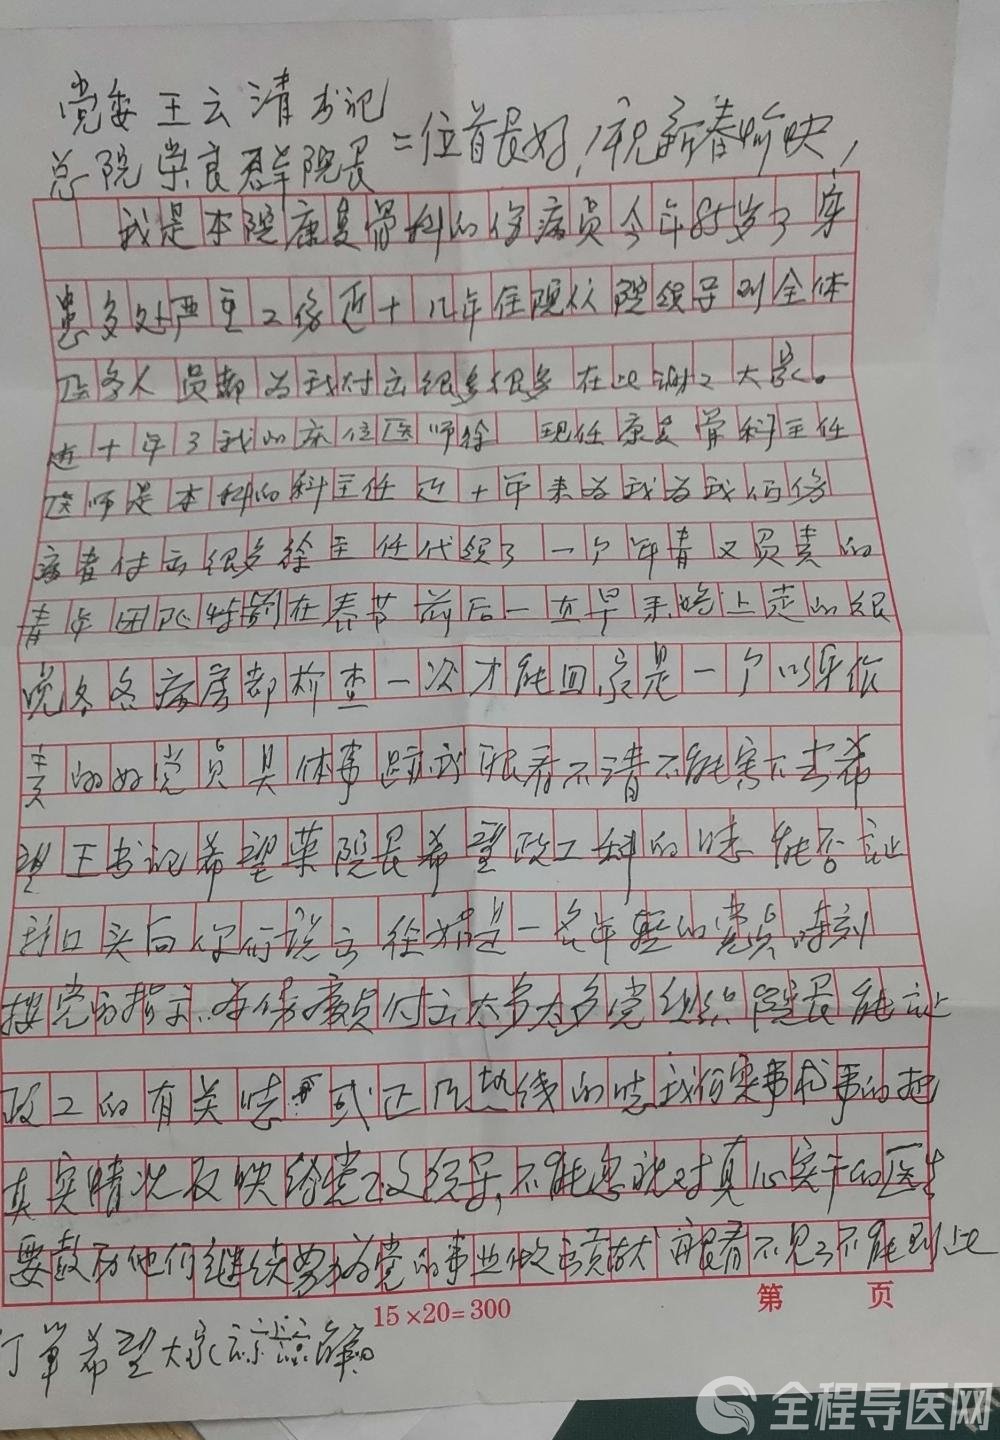 党委王云清书记
总院荣良群院长 二位首长好！祝新春愉快！
我是本院康复骨科的伤病员今年85岁了身
患多处严重工伤近十几年住院从院领导到全体
医务人员都为我付出很多很多在此谢谢大家。
近十年了我的床位医师徐 现任康复骨科主任
医师是本科的科主任近十年来为我为我们伤
病者付出很多徐主任代领了一个年青又负责的
青年团队特别在春节前后一直早来晚上走的很
晚各各病房都检查一次才能回家是一个以身作
责的好党员具体事迹我眼看不清不能写下去希
望王书记希望荣院长希望政工科的 能否让
我口头向你们说出徐婧是一名年轻的党员时刻
按党的指示为伤病员付出太多太多党组织院长能让
政工的有关 或正风热线的 我们实事求事的把
真实情况反映给党政领导，不能忽视对真心实干的医生
要鼓励他们继续努力为党的事业做出贡献 眼看不见了不能到此
打算希望大家谅
15×20=300
第 页
全程导医网